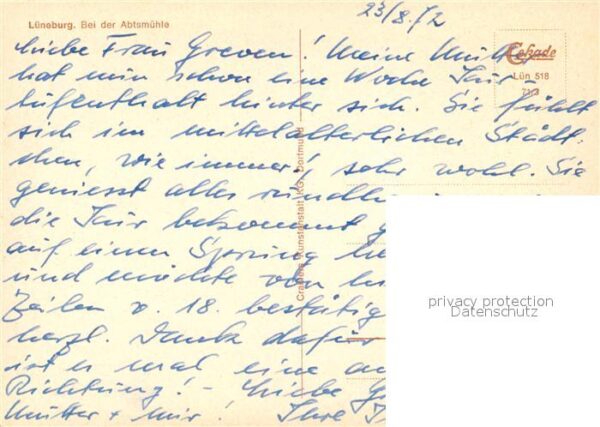 Lüneburg. Bei der Abtsmühle
23/8.72
Cekade
Lün 518
71/3
Liebe Frau Greven! Meine Mutter
hat nun schon eine Woche Kur-
aufenthalt hinter sich. Sie fühlt
sich im mittelalterlichen Städt-
chen, wie immer!, sehr wohl. Sie
geniesst alles
die Kur bekommt
auf einen Sprung
und möchte von
Zeilen v. 18. bestätig
herzl. Dank dafür
ist es mal eine
Richtung! - Liebe
Mutter + mir! Ihre
Kunstanstalt KG, Dortmund
privacy protection
Datenschutz